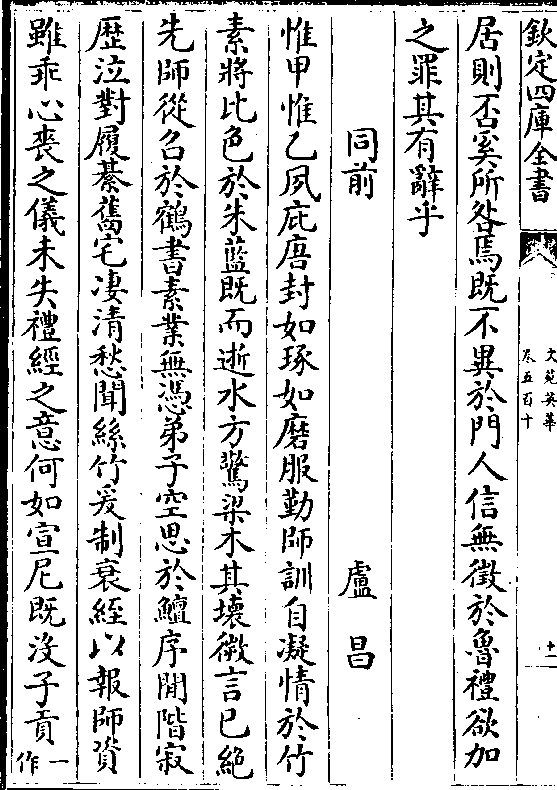 欽定四庫全書
文苑英華
卷五百十
十一
居則否奚所咎焉既不異於門人信無徵於魯禮欲加
之罪其有辭乎
同前 盧昌
惟甲惟乙夙庇唐封如琢如磨服勤師訓自凝情於竹
素將比色於朱藍既而逝水方驚梁木其壞微言已絕
先師從召於鶴書素業無憑弟子空思於鱣序閒階寂
歴泣對履綦舊宅凄清愁聞絲竹爰制衰絰以報師資
雖乖心喪之儀未失禮經之意何如宣尼既沒子貢一作